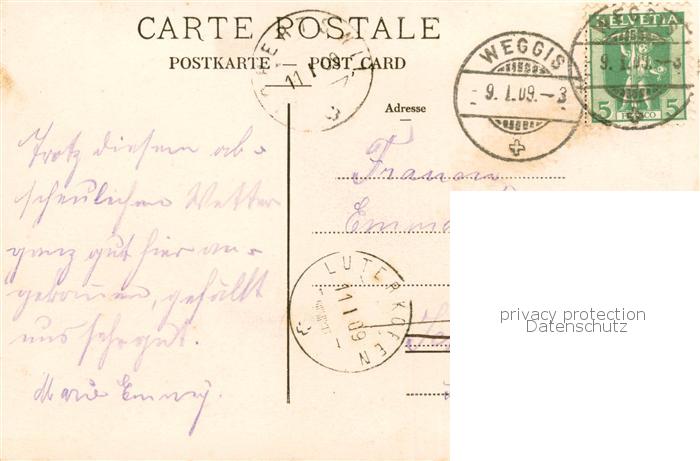 CARTE POSTALE
POSTKARTE — POST CARD
Adresse
WEGGIS
9. I. 09. — 3
HELVETIA
WEGGIS
9. I. 09. — 3
5 FRANCO 5
11 I 09
3
Trotz diesem ab-
scheulichen Wetter
ganz gut hier an-
gekommen, gefällt
uns sehr gut.
Marie
Emma
LUTERKOFEN
11 I 09
3
privacy protection
Datenschutz